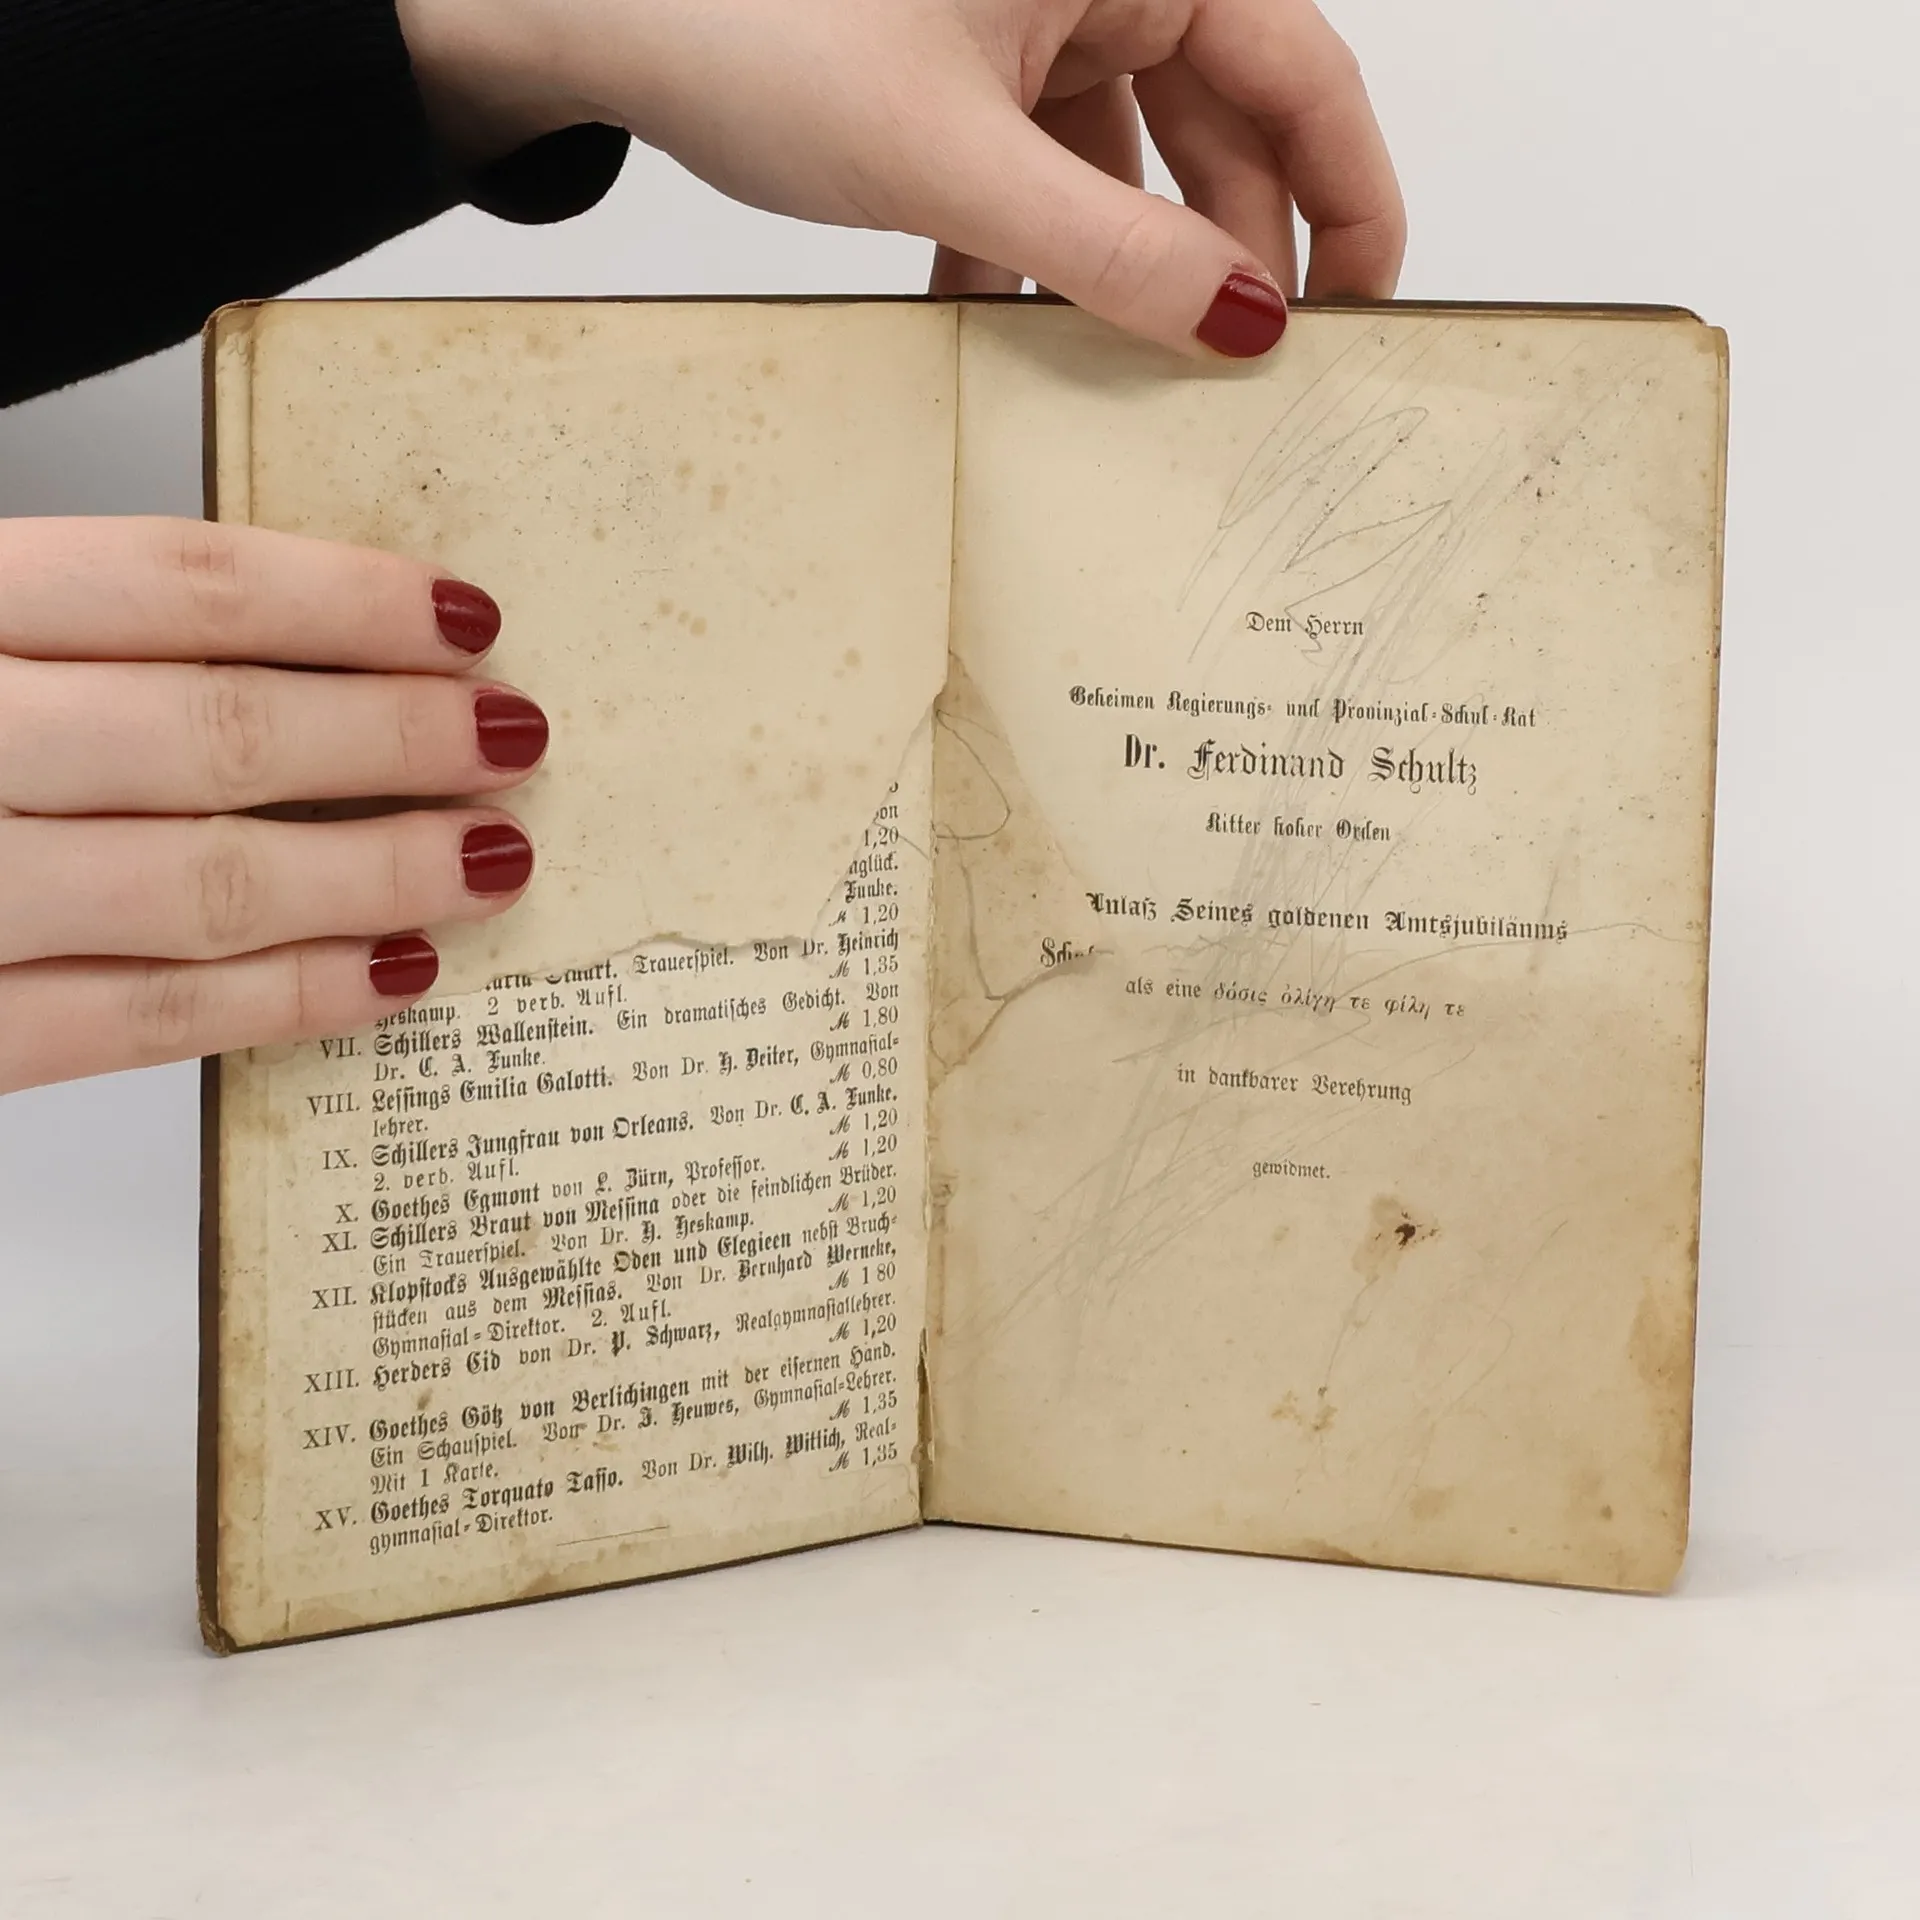 on
1,20
glück.
Funke.
M 1,20
Stuart. Trauerspiel. Von Dr. Heinrich
Heskamp. 2 verb. Aufl. M 1,35
VII. Schillers Wallenstein. Ein dramatisches Gedicht. Von
Dr. C. A. Funke. M 1,80
VIII. Lessings Emilia Galotti. Von Dr. H. Deiter, Gymnasial-
lehrer. M 0,80
IX. Schillers Jungfrau von Orleans. Von Dr. C. A. Funke.
2. verb. Aufl. M 1,20
X. Goethes Egmont von L. Zürn, Professor. M 1,20
XI. Schillers Braut von Messina oder die feindlichen Brüder.
Ein Trauerspiel. Von Dr. H. Heskamp. M 1,20
XII. Klopstocks Ausgewählte Oden und Elegieen nebst Bruch-
stücken aus dem Messias. Von Dr. Bernhard Werneke,
Gymnasial-Direktor. 2. Aufl. M 1 80
XIII. Herders Cid von Dr. P. Schwarz, Realgymnasiallehrer.
M 1,20
XIV. Goethes Götz von Berlichingen mit der eisernen Hand.
Ein Schauspiel. Von Dr. J. Heuwes, Gymnasial-Lehrer.
Mit 1 Karte. M 1,35
XV. Goethes Torquato Tasso. Von Dr. Wilh. Wittich, Real-
gymnasial-Direktor. M 1,35
Dem Herrn
Geheimen Regierungs- und Provinzial-Schul-Rat
Dr. Ferdinand Schultz
Ritter hoher Orden
Anlaß Seines goldenen Amtsjubiläums
als eine δόσις ὀλίγη τε φίλη τε
in dankbarer Verehrung
gewidmet.